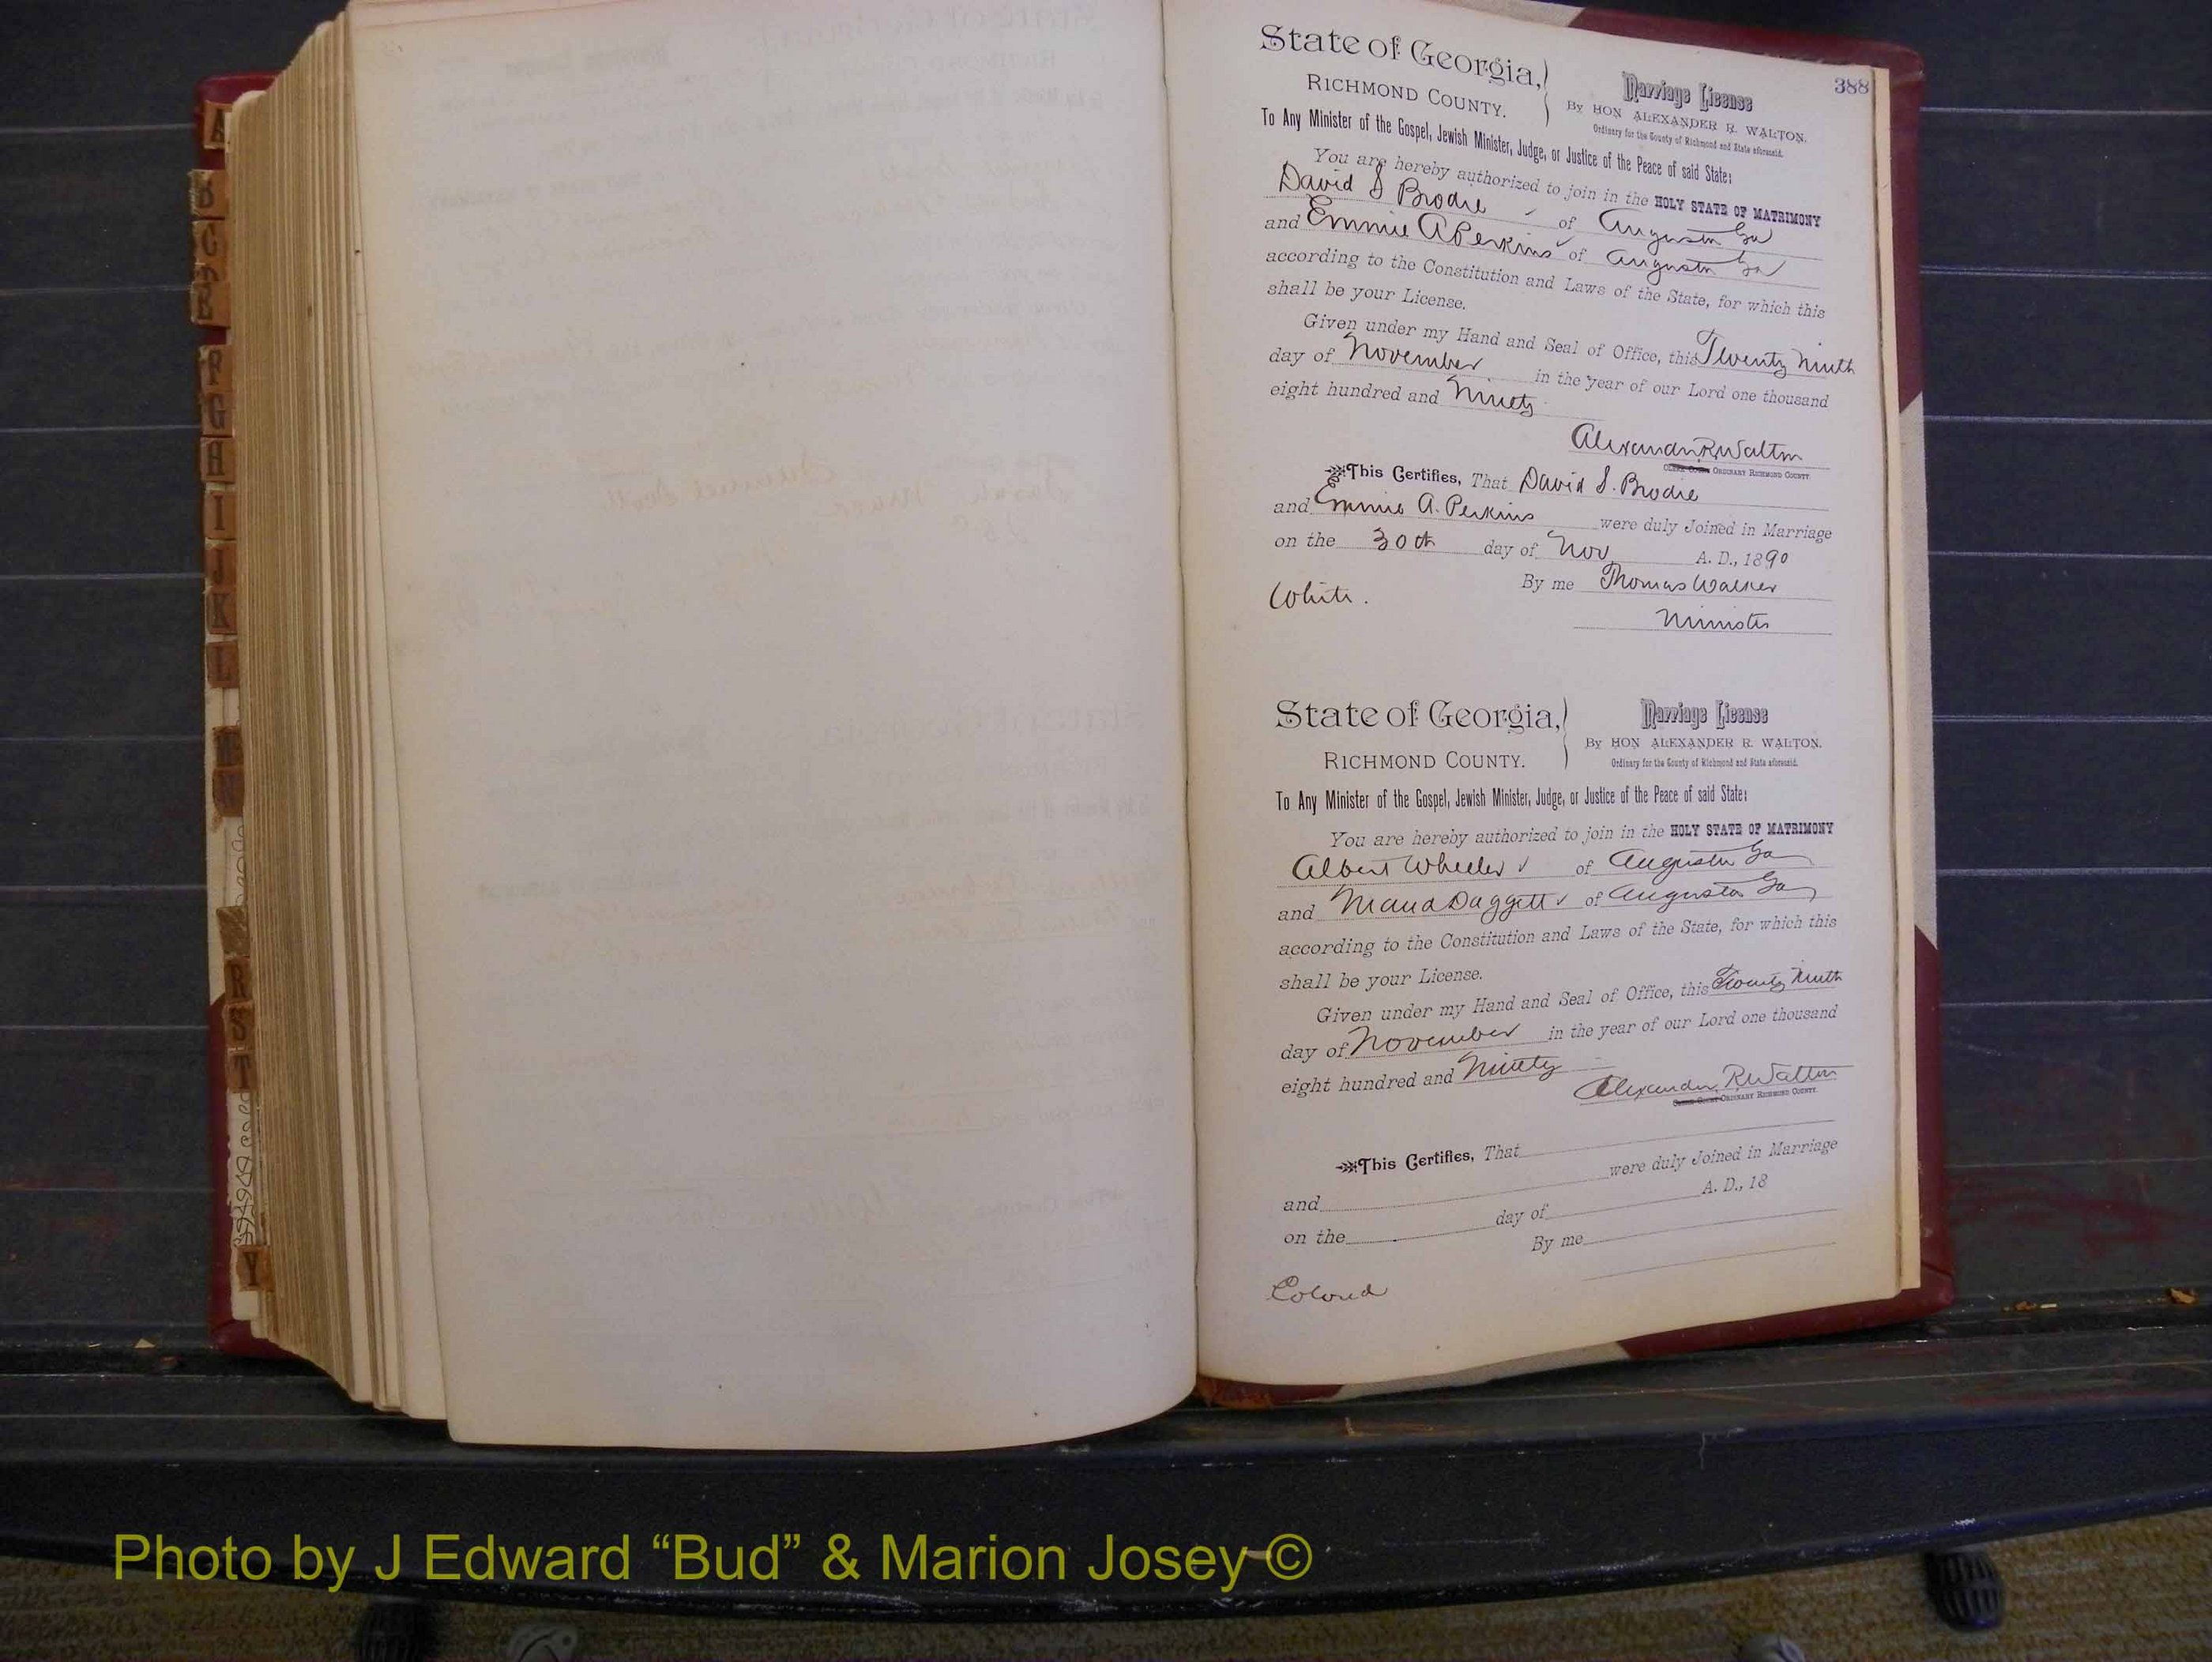 388
State of Georgia,
RICHMOND COUNTY.
Marriage License
By HON ALEXANDER R. WALTON.
Ordinary for the County of Richmond and State aforesaid.
To Any Minister of the Gospel, Jewish Minister, Judge, or Justice of the Peace of said State:
You are hereby authorized to join in the HOLY STATE OF MATRIMONY
David S Brodie of Augusta Ga
and Emmie A Perkins of Augusta Ga
according to the Constitution and Laws of the State, for which this
shall be your License.
Given under my Hand and Seal of Office, this Twenty Ninth
day of November in the year of our Lord one thousand
eight hundred and Ninety
Alexander R Walton
ORDINARY RICHMOND COUNTY.
This Certifies, That David S. Brodie
and Emmie A. Perkins were duly Joined in Marriage
on the 30th day of Nov A. D., 1890
By me Thomas Walker
White.
Minister
State of Georgia,
RICHMOND COUNTY.
Marriage License
By HON ALEXANDER R. WALTON.
Ordinary for the County of Richmond and State aforesaid.
To Any Minister of the Gospel, Jewish Minister, Judge, or Justice of the Peace of said State:
You are hereby authorized to join in the HOLY STATE OF MATRIMONY
Albert Wheeler of Augusta Ga
and Maud Daggett of Augusta Ga
according to the Constitution and Laws of the State, for which this
shall be your License.
Given under my Hand and Seal of Office, this Twenty Ninth
day of November in the year of our Lord one thousand
eight hundred and Ninety
Alexander R Walton
CLERK COURT ORDINARY RICHMOND COUNTY.
This Certifies, That
and were duly Joined in Marriage
on the day of A. D., 18
By me
Colored
A
B
C
D
E
F
G
H
I
J
K
L
M
N
R
S
T
Y
Photo by J Edward “Bud” & Marion Josey ©